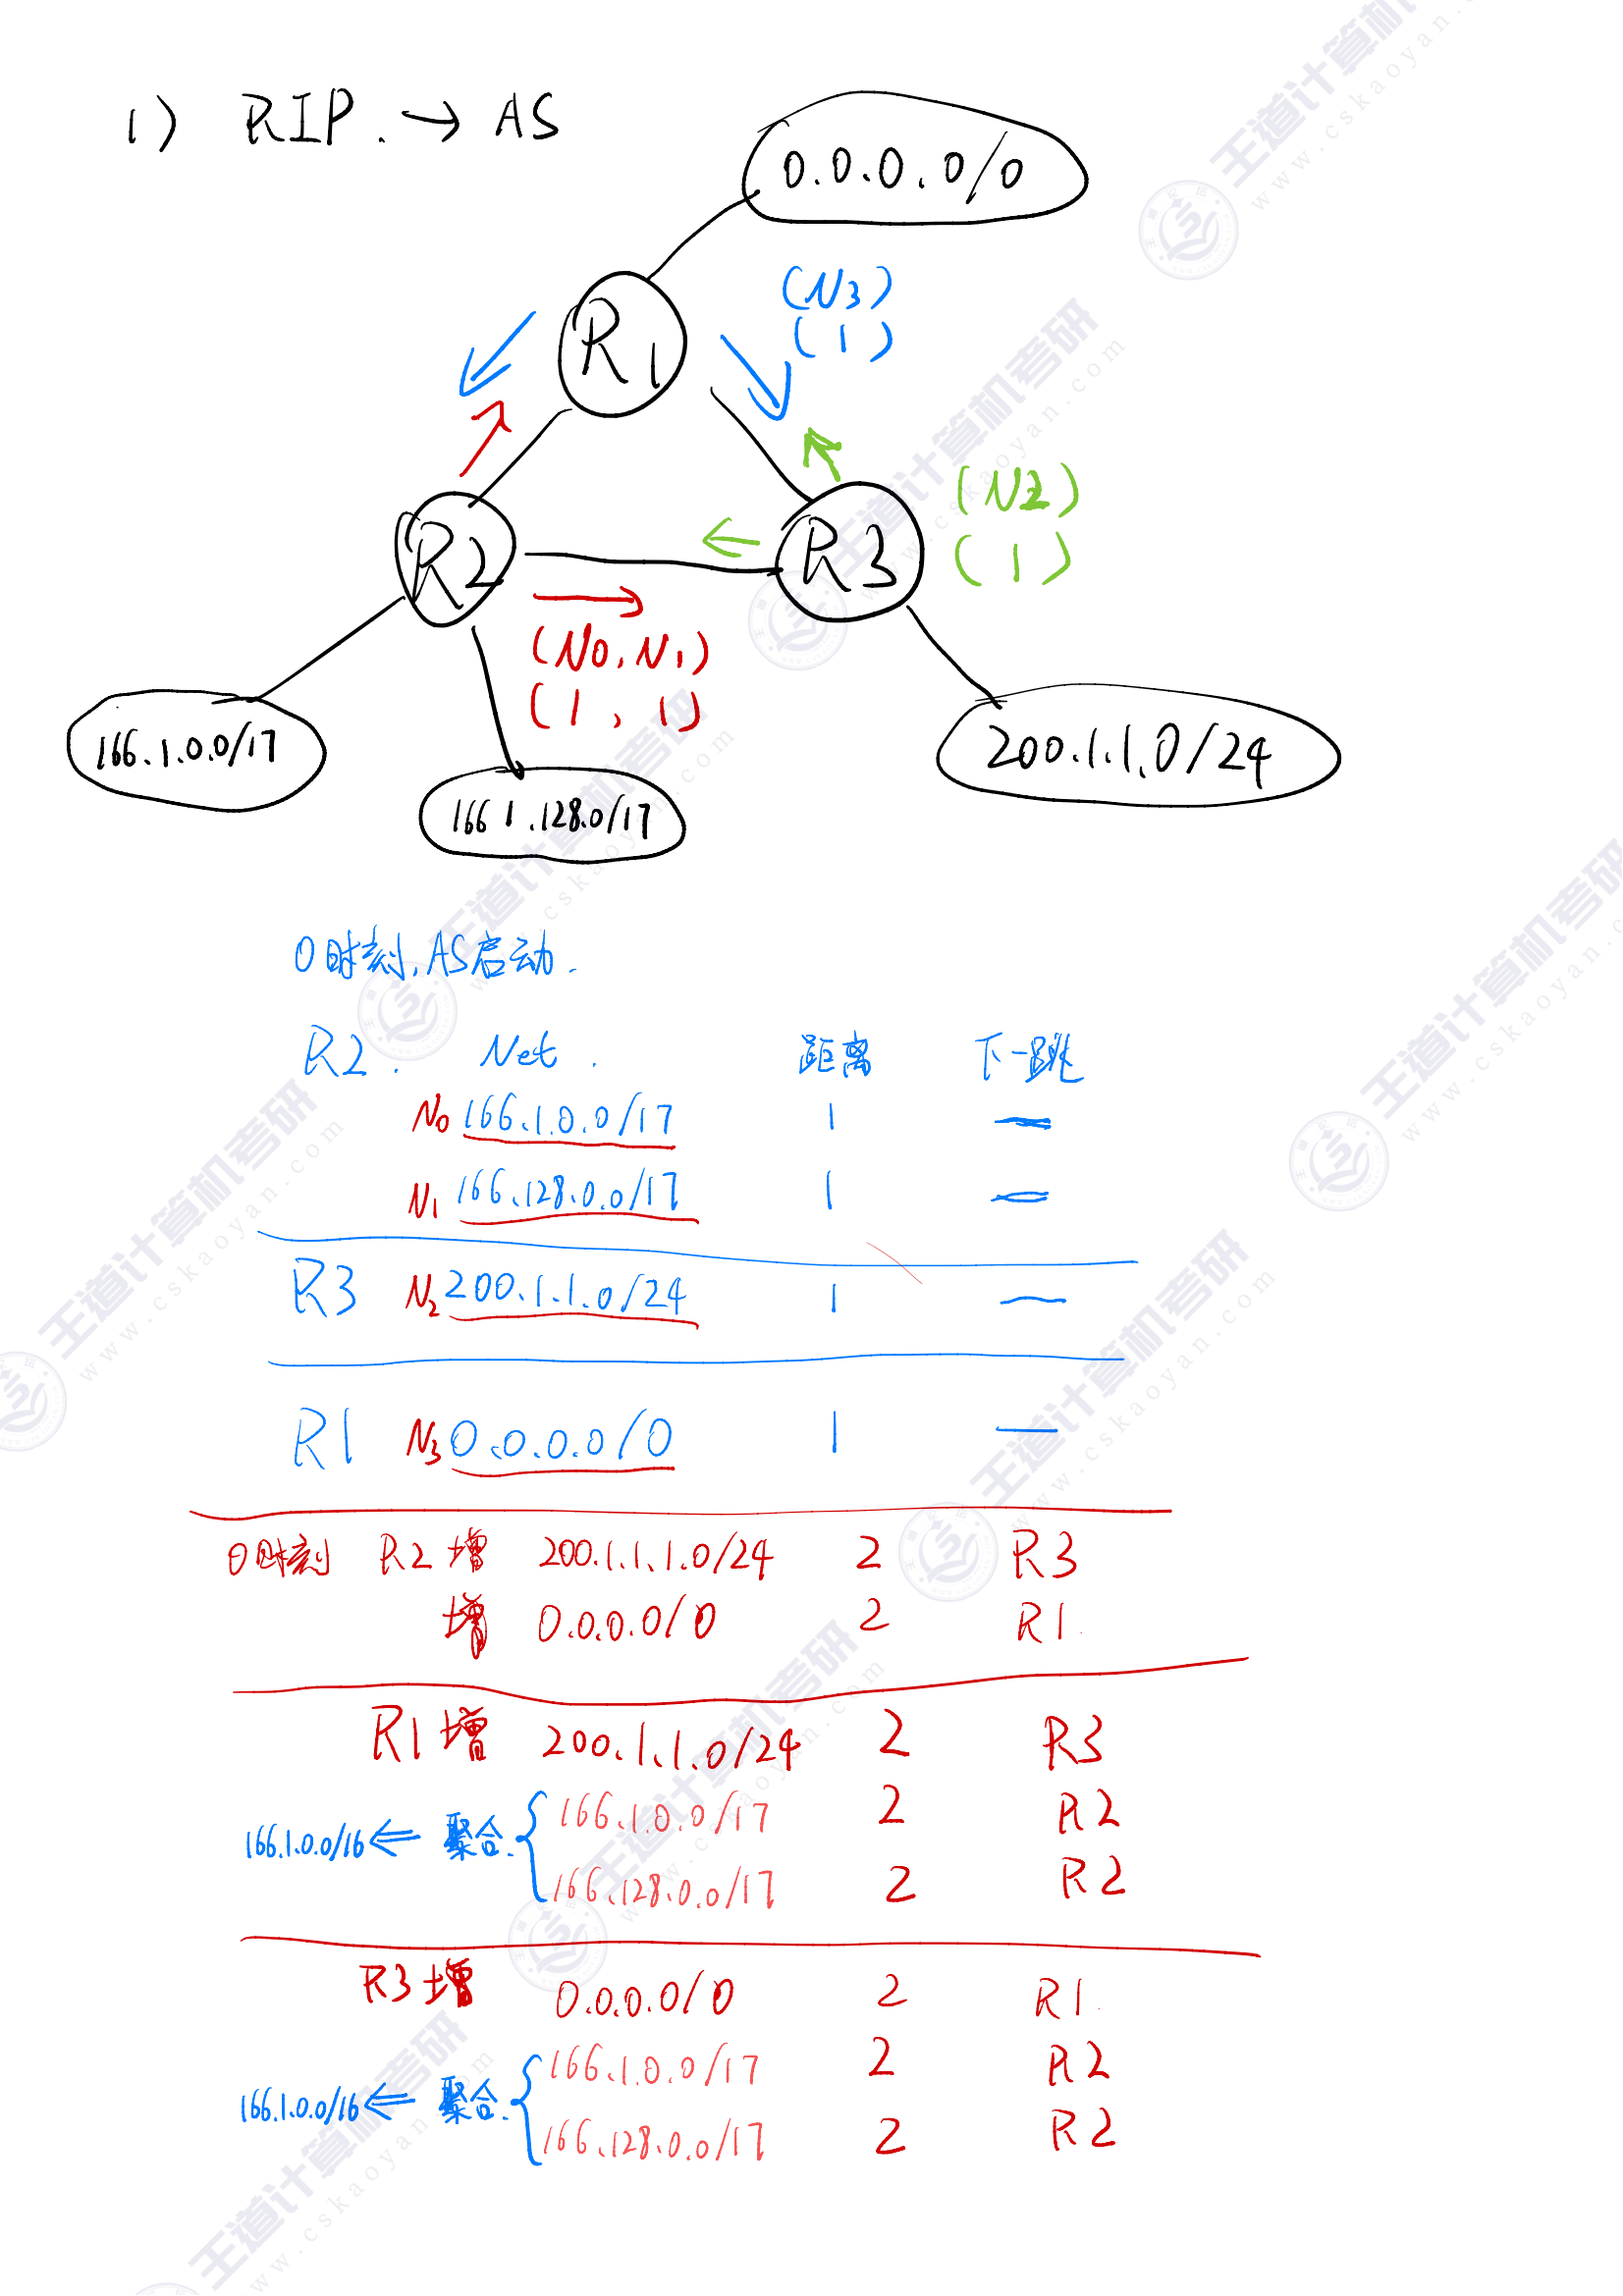 1) RIP. → AS
0.0.0.0/0
R1
(N3)
(1)
R2
R3
(N2)
(1)
(N0, N1)
(1, 1)
166.1.0.0/17
166 1.128.0/17
200.1.1.0/24
0时刻, AS启动.
R2. Net. 距离 下一跳
N0 166.1.0.0/17 1 —
N1 166.128.0.0/17 1 —
R3 N2 200.1.1.0/24 1 —
R1 N3 0.0.0.0/0 1 —
0时刻 R2增 200.1.1.1.0/24 2 R3
增 0.0.0.0/0 2 R1
R1增 200.1.1.0/24 2 R3
166.1.0.0/17 2 R2
166.1.0.0/16 ⇐ 聚合.
166.128.0.0/17 2 R2
R3增 0.0.0.0/0 2 R1
166.1.0.0/17 2 R2
166.1.0.0/16 ⇐ 聚合.
166.128.0.0/17 2 R2
王道计算机考研
www.cskaoyan.com